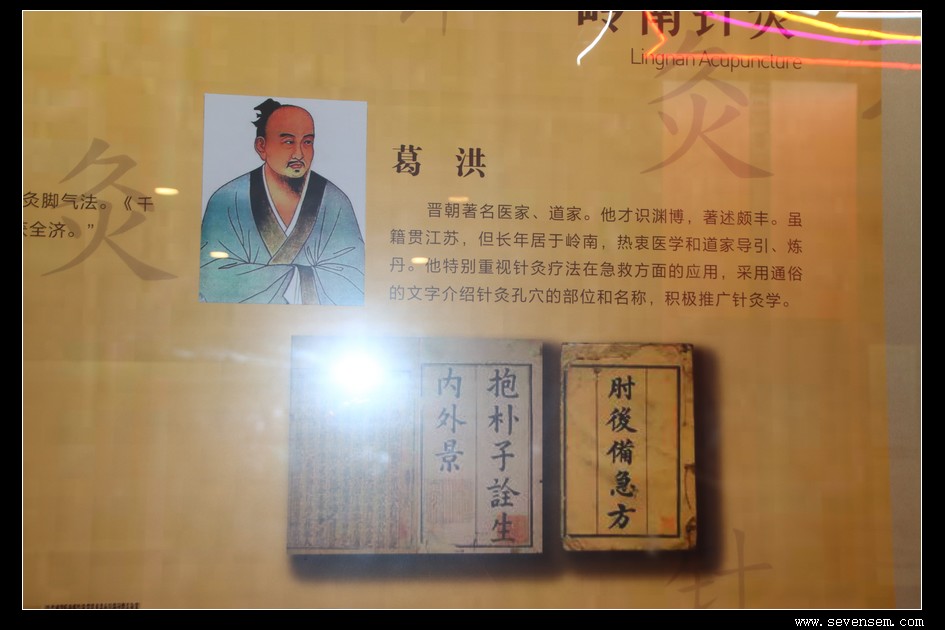 岭南针灸
Lingnan Acupuncture
灸
灸
灸脚气法。《千
全济。”
葛 洪
晋朝著名医家、道家。他才识渊博，著述颇丰。虽
籍贯江苏，但长年居于岭南，热衷医学和道家导引、炼
丹。他特别重视针灸疗法在急救方面的应用，采用通俗
的文字介绍针灸孔穴的部位和名称，积极推广针灸学。
抱朴子詮生
内外景
肘後備急方
针
www.sevensem.com